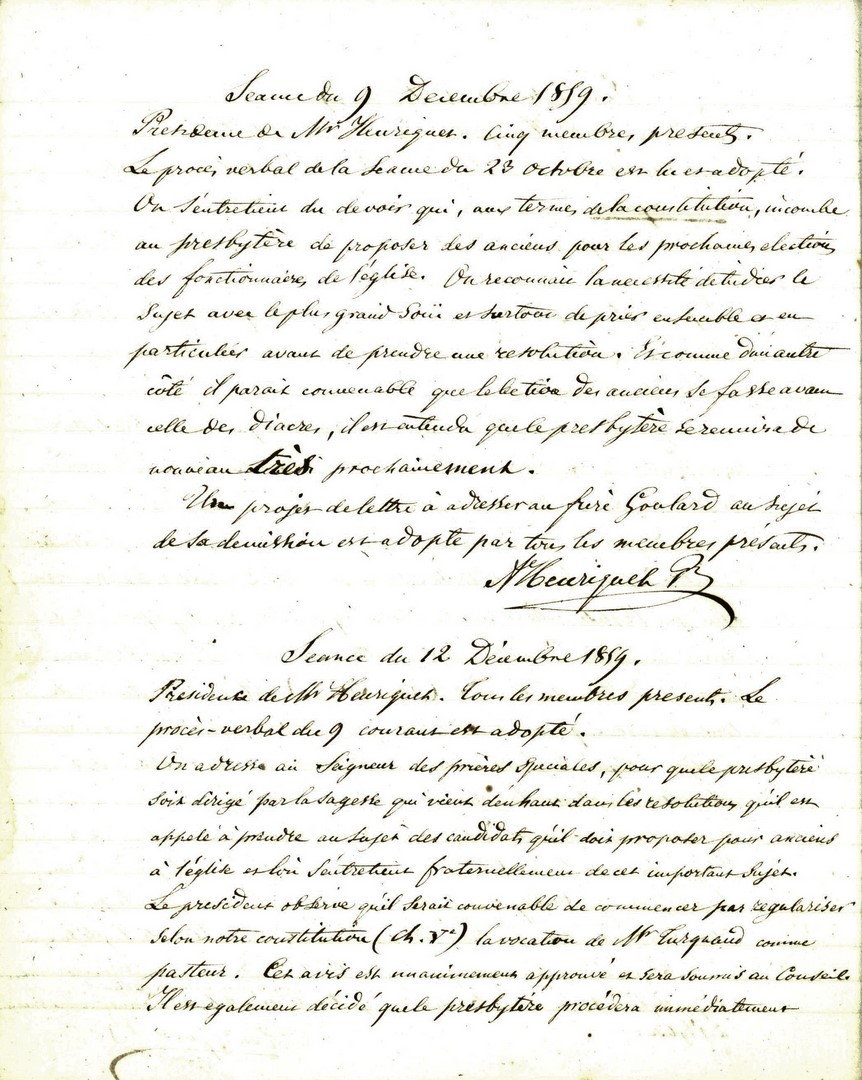 Seance du 9 Decembre 1859.
Presidence de Mr Henriquet. Cinq membres presents.
Le procès verbal de la Seance du 23 octobre est lu et adopté.
On s'entretient du devoir qui, aux termes de la constitution, incombe
au presbytère de proposer des anciens pour les prochaines elections
des fonctionnaires de l'église. On reconnait la necessité d'etudier le
Sujet avec le plus grand Soin et surtout de prier ensemble et en
particulier avant de prendre une resolution. Et comme d'un autre
côté il parait convenable que l'election des anciens se fasse avant
celle des Diacres, il est entendu que le presbytère se reunira de
nouveau très prochainement.
Un projet de lettre à adresser au frère Goulard au sujet
de sa demission est adopté par tous les membres présents.
Ate Henriquet P.
Seance du 12 Décembre 1859.
Presidence de Mr Henriquet. Tous les membres presents. Le
procès-verbal du 9 courant est adopté.
On adresse au Seigneur des prières speciales, pour que le presbytère
soit dirigé par la sagesse qui vient d'en haut dans les resolutions qu'il est
appelé à prendre au sujet des candidats qu'il doit proposer pour anciens
à l'église et l'on s'entretient fraternellement de cet important sujet.
Le president observe qu'il serait convenable de commencer par regulariser
selon notre constitution (ch. ) la vocation de Mr Turquand comme
pasteur. Cet avis est unanimement approuvé et sera soumis au Conseil.
Il est également décidé que le presbytère procédera immédiatement